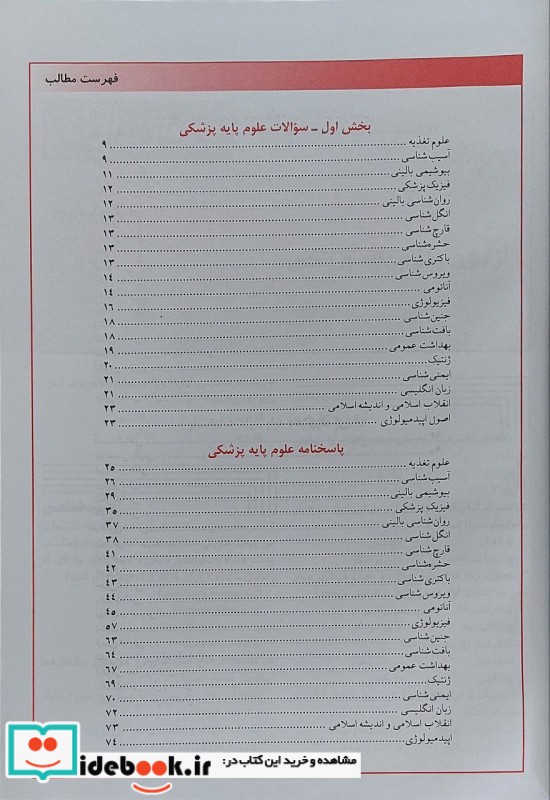 فهرست مطالب
بخش اول ـ سؤالات علوم پایه پزشکی
علوم تغذیه ........ ۹
آسیب‌شناسی ........ ۹
بیوشیمی بالینی ........ ۱۱
فیزیک پزشکی ........ ۱۲
روان‌شناسی بالینی ........ ۱۲
انگل‌شناسی ........ ۱۳
قارچ‌شناسی ........ ۱۳
حشره‌شناسی ........ ۱۳
باکتری‌شناسی ........ ۱۳
ویروس‌شناسی ........ ۱۴
آناتومی ........ ۱۴
فیزیولوژی ........ ۱۶
جنین‌شناسی ........ ۱۸
بافت‌شناسی ........ ۱۸
بهداشت عمومی ........ ۱۹
ژنتیک ........ ۲۰
ایمنی‌شناسی ........ ۲۱
زبان انگلیسی ........ ۲۱
انقلاب اسلامی و اندیشه اسلامی ........ ۲۳
اصول اپیدمیولوژی ........ ۲۳
پاسخنامه علوم پایه پزشکی
علوم تغذیه ........ ۲۵
آسیب‌شناسی ........ ۲۶
بیوشیمی بالینی ........ ۲۹
فیزیک پزشکی ........ ۳۵
روان‌شناسی بالینی ........ ۳۷
انگل‌شناسی ........ ۳۸
قارچ‌شناسی ........ ۴۱
حشره‌شناسی ........ ۴۲
باکتری‌شناسی ........ ۴۳
ویروس‌شناسی ........ ۴۴
آناتومی ........ ۴۵
فیزیولوژی ........ ۵۷
جنین‌شناسی ........ ۶۳
بافت‌شناسی ........ ۶۴
بهداشت عمومی ........ ۶۷
ژنتیک ........ ۶۹
ایمنی‌شناسی ........ ۷۰
زبان انگلیسی ........ ۷۲
انقلاب اسلامی و اندیشه اسلامی ........ ۷۳
اپیدمیولوژی ........ ۷۴
مشاهده و خرید این کتاب در:
idebook.ir